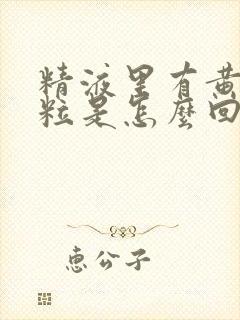 精液里有黄
粒是怎麼回
惠公子